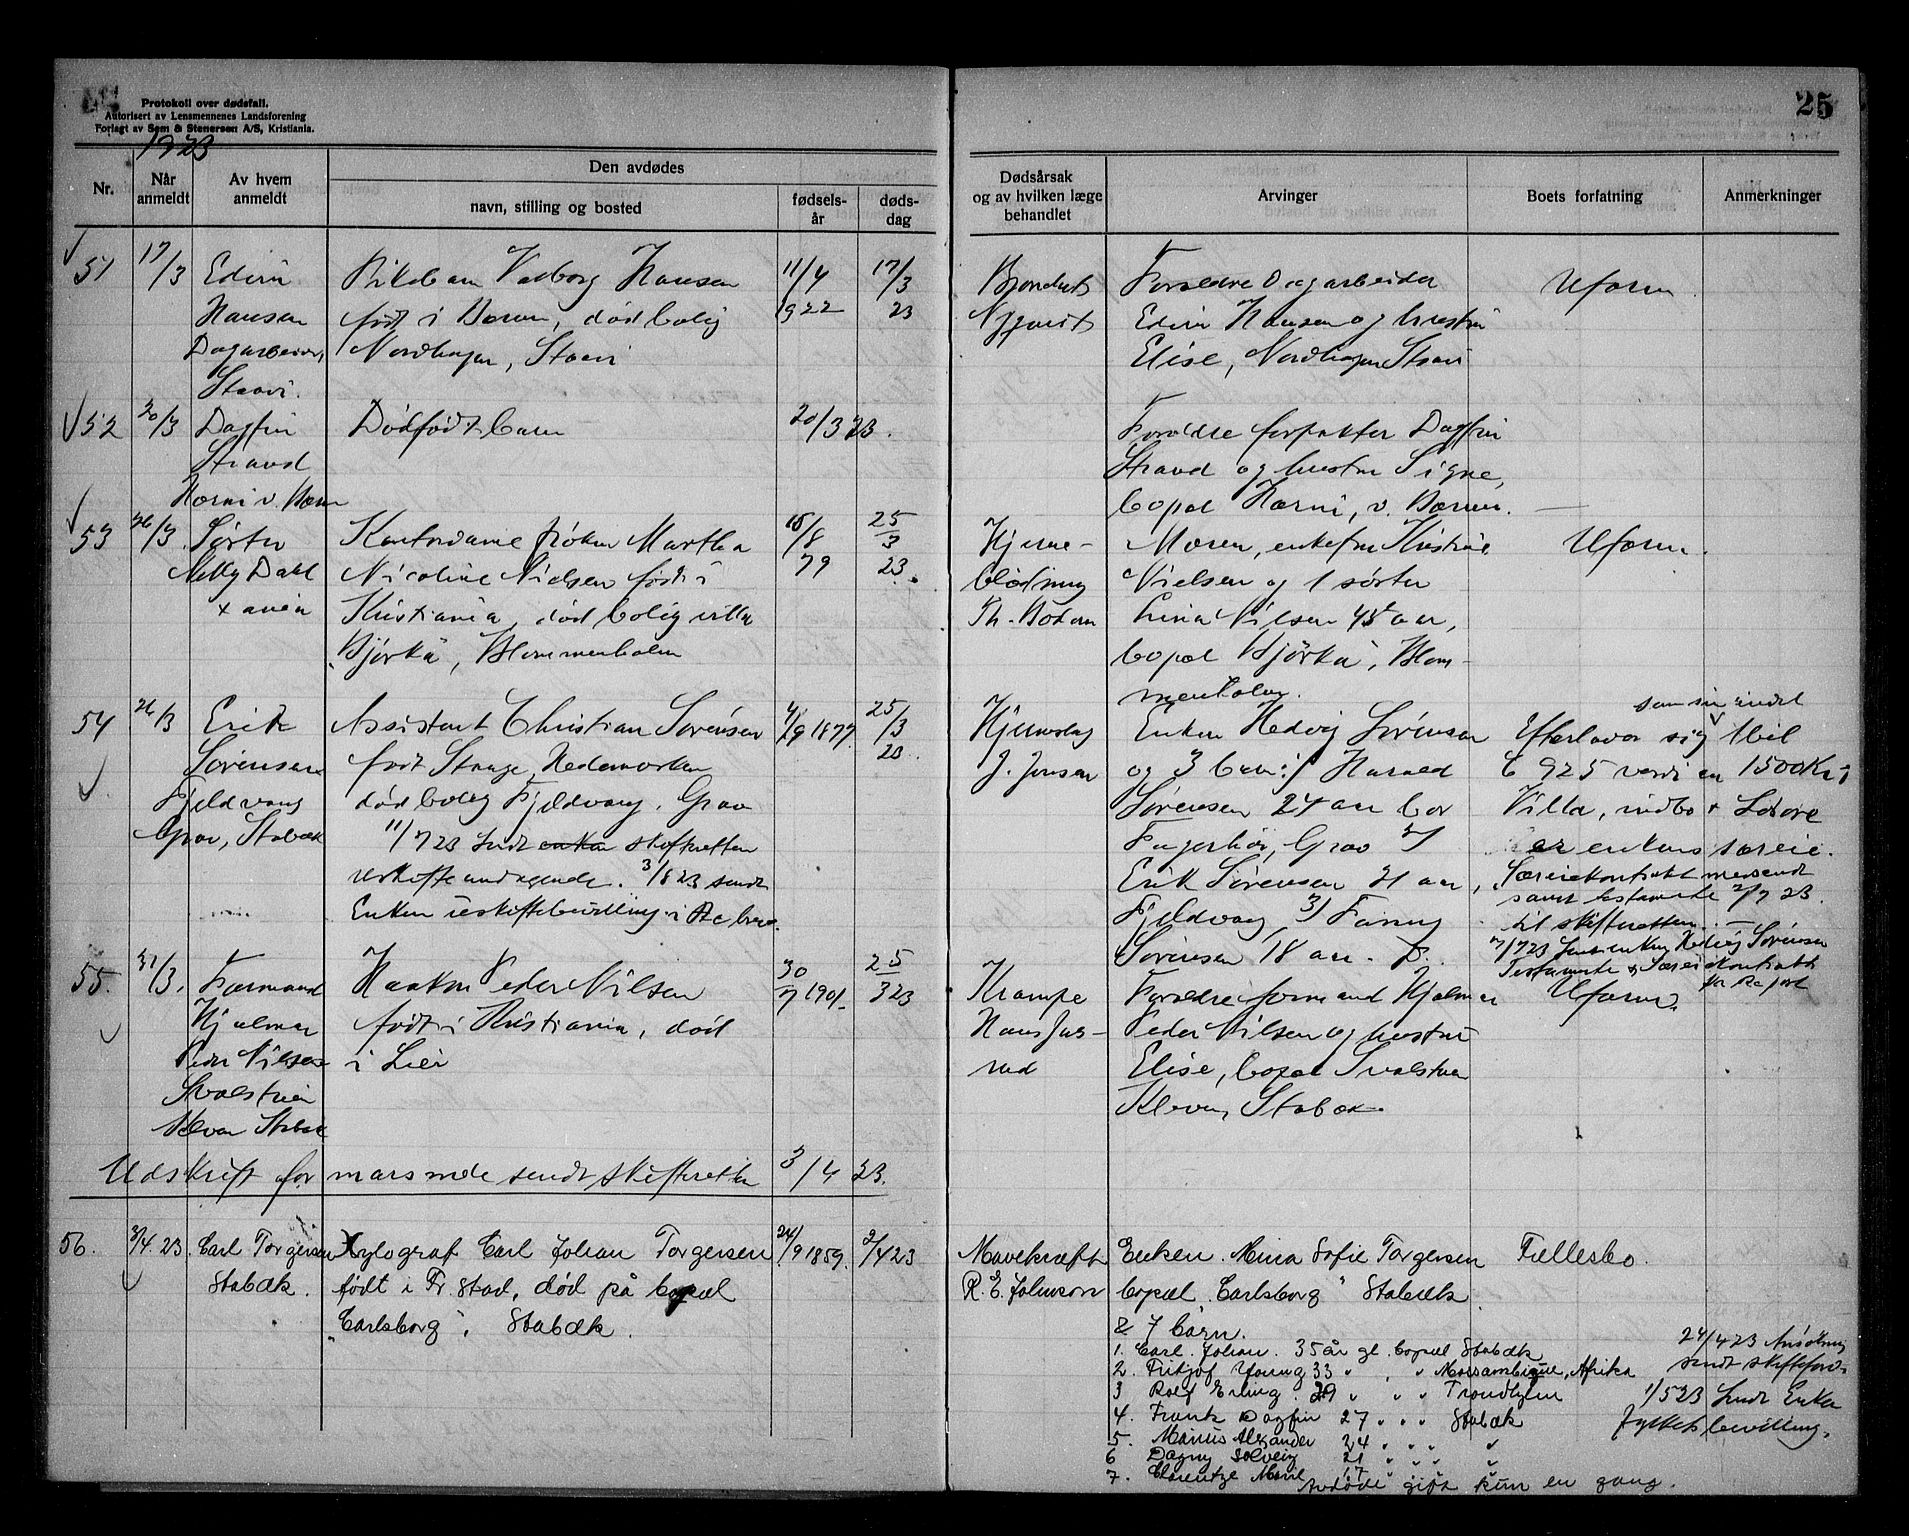 Protokoll over dødsfall.
Autorisert av Lensmennenes Landsforening
Forlagt av Sem & Stenersen A/S, Kristiania.
25
1923
Nr.
Når anmeldt
Av hvem anmeldt
Den avdødes
navn, stilling og bosted
fødsels-år
døds-dag
Dødsårsak og av hvilken læge behandlet
Arvinger
Boets forfatning
Anmerkninger
51
17/3
Edvin
Hansen
Dagarbeider,
Staavi.
Pikebarn Valborg Hansen
født i Bærum, død bolig
Nordhagen, Staavi
11/4
1922
17/3
23
Nygaard
Forældre Dagarbeider
Edvin Hansen og hustru
Elise, Nordhagen Staavi
Uform.
52
20/3
Dagfin
Strand
Hærni v. Bærum
Dødfødt barn
20/3 23.
Forældre forpakter Dagfin
Strand og hustru Signe,
bopæl Hærni, v. Bærum.
—
53
26/3.
Søster
Nelly Dahl
x ania
Kontordame frøken Martha
Nicoline Nielsen født i
Kristiania, død bolig villa
„Bjørka", Blommenholm
15/8
79
25/3
23.
Hjerne-
blødning
Th. Bodom
Moren, enkefru Kristine
Nielsen og 1 søster
Lina Nilsen 45 aar,
bopæl Bjørka, Blom-
menholm.
Uform.
54
26/3
Erik
Sørensen
Fjeldvang
Grav, Stabæk
Assistent Christian Sørensen
født Stange, Hedemarken
død bolig Fjeldvang, Grav
11/7 23 sendt enken skifteretten
uskifteandragende. 3/8 23 sendt
Enken uskiftebevilling i Rec brev.
4/9 1877.
25/3
23.
Hjerneslag
J. Jonsen
Enken Hedvig Sørensen
og 3 barn: 1/ Harald
Sørensen 24 aar bor
Fagerhøi, Grav 2/
Erik Sørensen 21 aar,
Fjeldvang, 3/ Fanny
Sørensen 18 aar. D.
som sin eiendel
Efterlater sig 1 bil
C 925 verdi ca 1500 Kr.
Villa, indbo + Løsøre
er enkens særeie.
Særeiekontrakt medsendt
samt testamente 2/7 23
til skifteretten. —
7/7 23 sendt enken Hedvig Sørensen
Testamente & Særeiekontrakt
55.
31/3.
Formand
Hjalmar
Peder Nilsen
Kleven Stabæk
Haakon Peder Nilsen
født i Kristiania, død
i Lier
30/7 1901.
25/3 23
Krampe
Hans Jus-
rud
Forældre formand Hjalmar
Peder Nilsen og hustru
Elise, bopæl
Kleven, Stabæk.
Uform.
Udskrift for mars mde sendt skifteretten 3/4 23.
56.
3/4. 23.
Carl Torgersen
Stabæk.
Xylograf Carl Johan Torgersen
født i Fr. stad, død på bopæl
„Carlsborg", Stabæk.
24/9 1859.
2/4 23
Mavekræft
R. E. Johnson
Enken. Mina Sofie Torgersen
bopæl „Carlsborg" Stabæk
& 7 barn.
1. Carl. Johan. 35 år gl. bopæl Stabæk
2. Fritjof Young 33 " " " Mossambique, Afrika
3 Rolf Erling. 29 " " " Trondhjem
4. Frank Dagfin 27 " " " Stabæk
5. Marius Alexander 24 " " " "
6 Dagny Solveig 21 " " " "
7. Clarentze Marie 17 " " " "
Avdøde gift kun en gang.
Fællesbo.
24/4 23 Ansökning
sendt skifteford.
1/5 23 sendt Enken
fylkets bevilling.